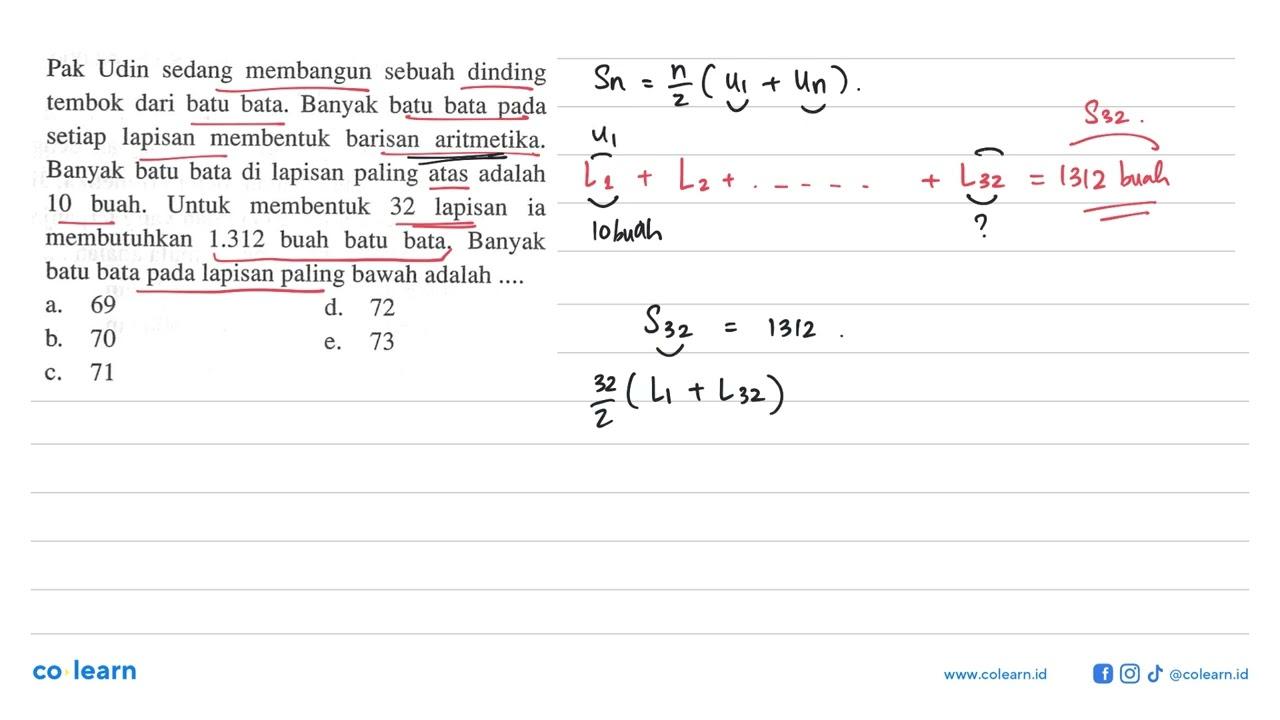 Pak Udin sedang membangun sebuah dinding
tembok dari batu bata. Banyak batu bata pada
setiap lapisan membentuk barisan aritmetika.
Banyak batu bata di lapisan paling atas adalah
10 buah. Untuk membentuk 32 lapisan ia
membutuhkan 1.312 buah batu bata. Banyak
batu bata pada lapisan paling bawah adalah ....
a. 69
b. 70
c. 71
d. 72
e. 73
Sn = n/2 (U1 + Un).
S32.
U1
L1 + L2 + . - - - - . + L32 = 1312 buah
10 buah
?
S32 = 1312 .
32/2 (L1 + L32)
co learn
www.colearn.id
@colearn.id